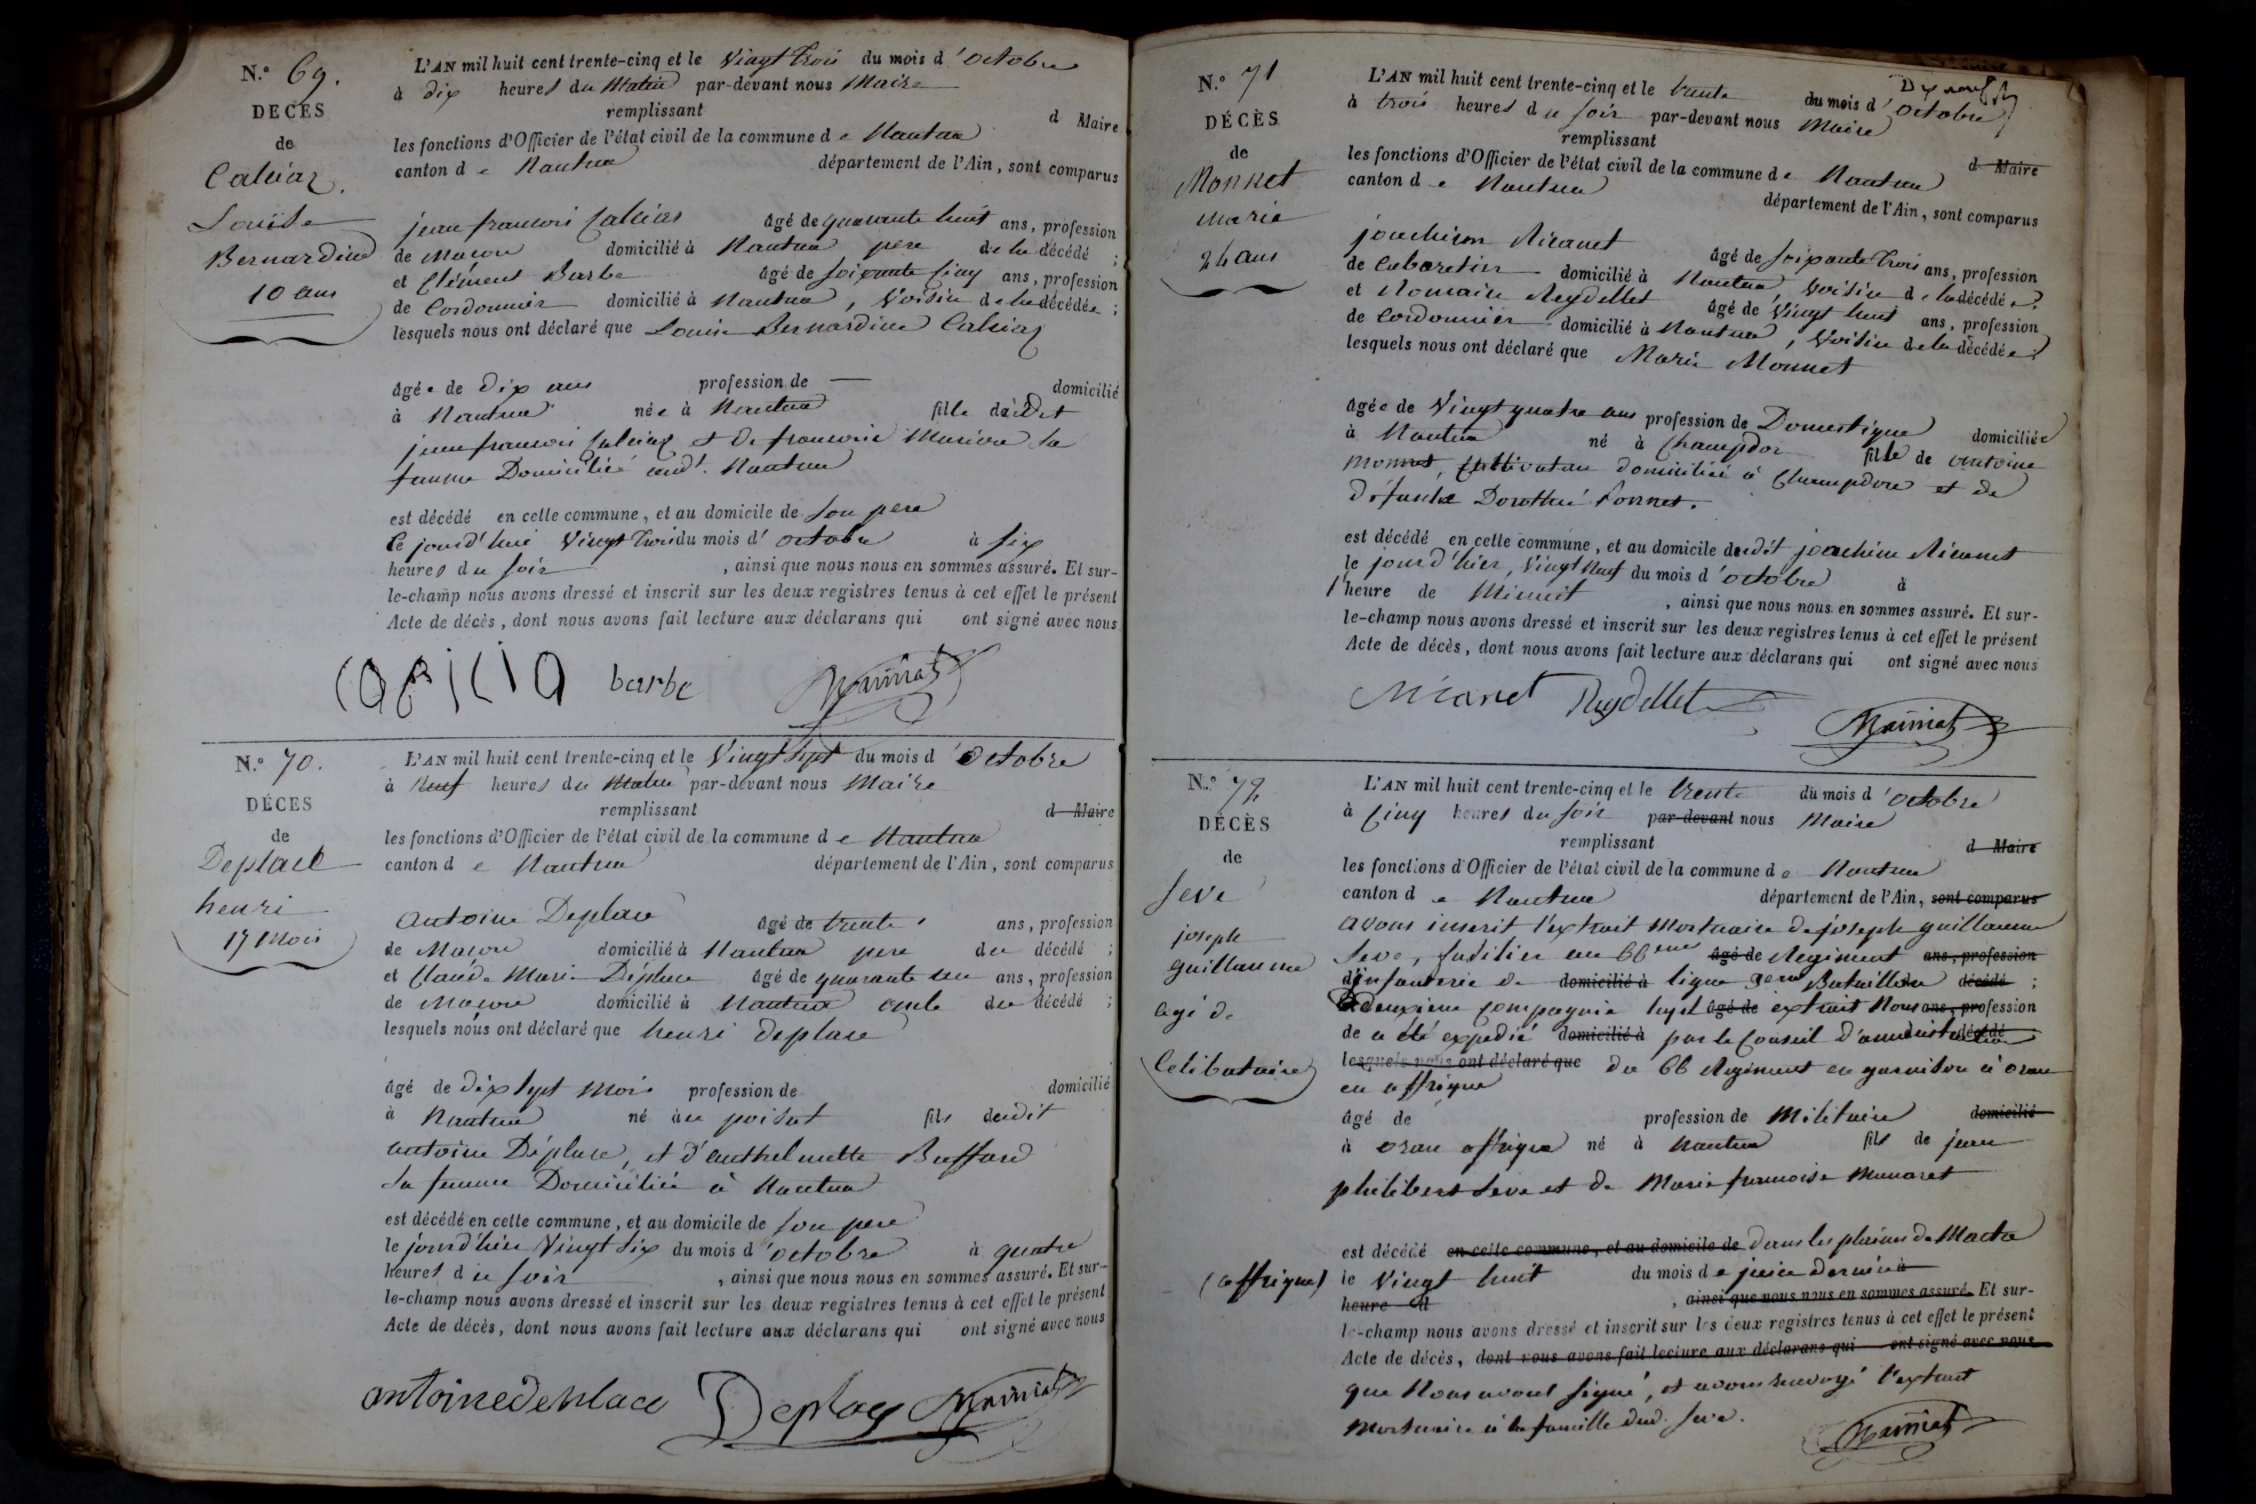 N.° 69.
DÉCÈS
de
Louise
Bernardine
10 ans
L'AN mil huit cent trente-cinq et le Vingt trois du mois d'octobre
à dix heures du Matin par-devant nous Maire
remplissant d Maire
les fonctions d'Officier de l'état civil de la commune de Nantua
canton de Nantua département de l'Ain, sont comparus
jean francois âgé de quarante huit ans, profession
de Macon domicilié à Nantua pere de la décédé ;
et Clément Barbe âgé de soixante cinq ans, profession
de Cordonnier domicilié à Nantua, Voisin de la décédée ;
lesquels nous ont déclaré que Louise Bernardine
âgée de dix ans profession de — domicilié
à Nantua née à Nantua fille dudit
jean francois et de francoise sa
femme Domiciliée Nantua
est décédé en celle commune, et au domicile de son pere
le jourd'hui Vingt trois du mois d'octobre à six
heures du soir, ainsi que nous nous en sommes assuré. Et sur-
le-champ nous avons dressé et inscrit sur les deux registres tenus à cet effet le présent
Acte de décès, dont nous avons fait lecture aux déclarans qui ont signé avec nous
barbe
N.° 70.
DÉCES
de
Deplace
henri
17 Mois
L'AN mil huit cent trente-cinq et le Vingt sept du mois d'Octobre
à Neuf heures du Matin par-devant nous Maire
remplissant d Maire
les fonctions d'Officier de l'état civil de la commune de Nantua
canton de Nantua département de l'Ain, sont comparus
Antoine Deplace âgé de trente ans, profession
de Macon domicilié à Nantua pere du décédé ;
et Claude Marie Déplace âgé de quarante un ans, profession
de Macon domicilié à Nantua oncle du décédé ;
lesquels nous ont déclaré que henri deplace
âgé de dix sept Mois profession de domicilié
à Nantua né au poisat fils dudit
antoine Déplace, et d'anthelmette Buffard
sa femme Domiciliée à Nantua
est décédé en cette commune, et au domicile de son pere
le jourd'hier Vingt six du mois d'octobre à quatre
heures du soir, ainsi que nous nous en sommes assuré. Et sur-
le-champ nous avons dressé et inscrit sur les deux registres tenus à cet effet le présent
Acte de décès, dont nous avons fait lecture aux déclarans qui ont signé avec nous
antoine deplace Deplace
N.° 71
DÉCÈS
de
Monnet
marie
24 ans
L'AN mil huit cent trente-cinq et le trente du mois d'octobre
à trois heures du soir par-devant nous Maire
remplissant d Maire
les fonctions d'Officier de l'état civil de la commune de Nantua
canton de Nantua département de l'Ain, sont comparus
joachim âgé de soixante trois ans, profession
de Cabaretier domicilié à Nantua, Voisin de la décédée ;
et Romain Reydellet âgé de Vingt huit ans, profession
de Cordonnier domicilié à Nantua, Voisin de la décédée ;
lesquels nous ont déclaré que Marie Monnet
âgée de Vingt quatre ans profession de Domestique domiciliée
à Nantua né à Champdor fille de antoine
monnet, Cultivateur domicilié à Champdore et de
défunte Dorothée
est décédé en celle commune, et au domicile dudit joachim
le jourd'hier, Vingt Neuf du mois d'octobre à
l'heure de Minuit, ainsi que nous nous en sommes assuré. Et sur-
le-champ nous avons dressé et inscrit sur les deux registres tenus à cet effet le présent
Acte de décès, dont nous avons fait lecture aux déclarans qui ont signé avec nous
Reydellet
N.° 72
DÉCÈS
de
Seve
joseph
guillaume
agé de
Celibataire
L'AN mil huit cent trente-cinq et le trente du mois d'octobre
à Cinq heures du soir par-devant nous Maire
remplissant d Maire
les fonctions d'Officier de l'état civil de la commune de Nantua
canton de Nantua département de l'Ain, sont comparus
avons inscrit l'extrait Mortuaire de joseph guillaume
Seve, fusilier au 66eme âgé de Regiment ans, profession
d'infanterie de domicilié à ligne Bataillon décédé ;
deuxieme compagnie lequel âgé de extrait Nous ans, profession
de a été expedié domicilié à par le Conseil d'administration décédé
lesquels nous ont déclaré que du 66 Regiment en garnison à oran
en affrique
âgé de profession de Militaire domicilié
à oran affrique né à Nantua fils de jean
philibert Seve et de Marie francoise Munaret
est décédé en celle commune, et au domicile de dans les plaines de Macta
(affrique) le Vingt huit du mois de juin dernier à
heure d, ainsi que nous nous en sommes assuré. Et sur-
le-champ nous avons dressé et inscrit sur les deux registres tenus à cet effet le présent
Acte de décès, dont nous avons fait lecture aux déclarans qui ont signé avec nous
que Nous avons signé, et avons renvoyé l'extrait
Mortuaire à la famille dud. Seve.